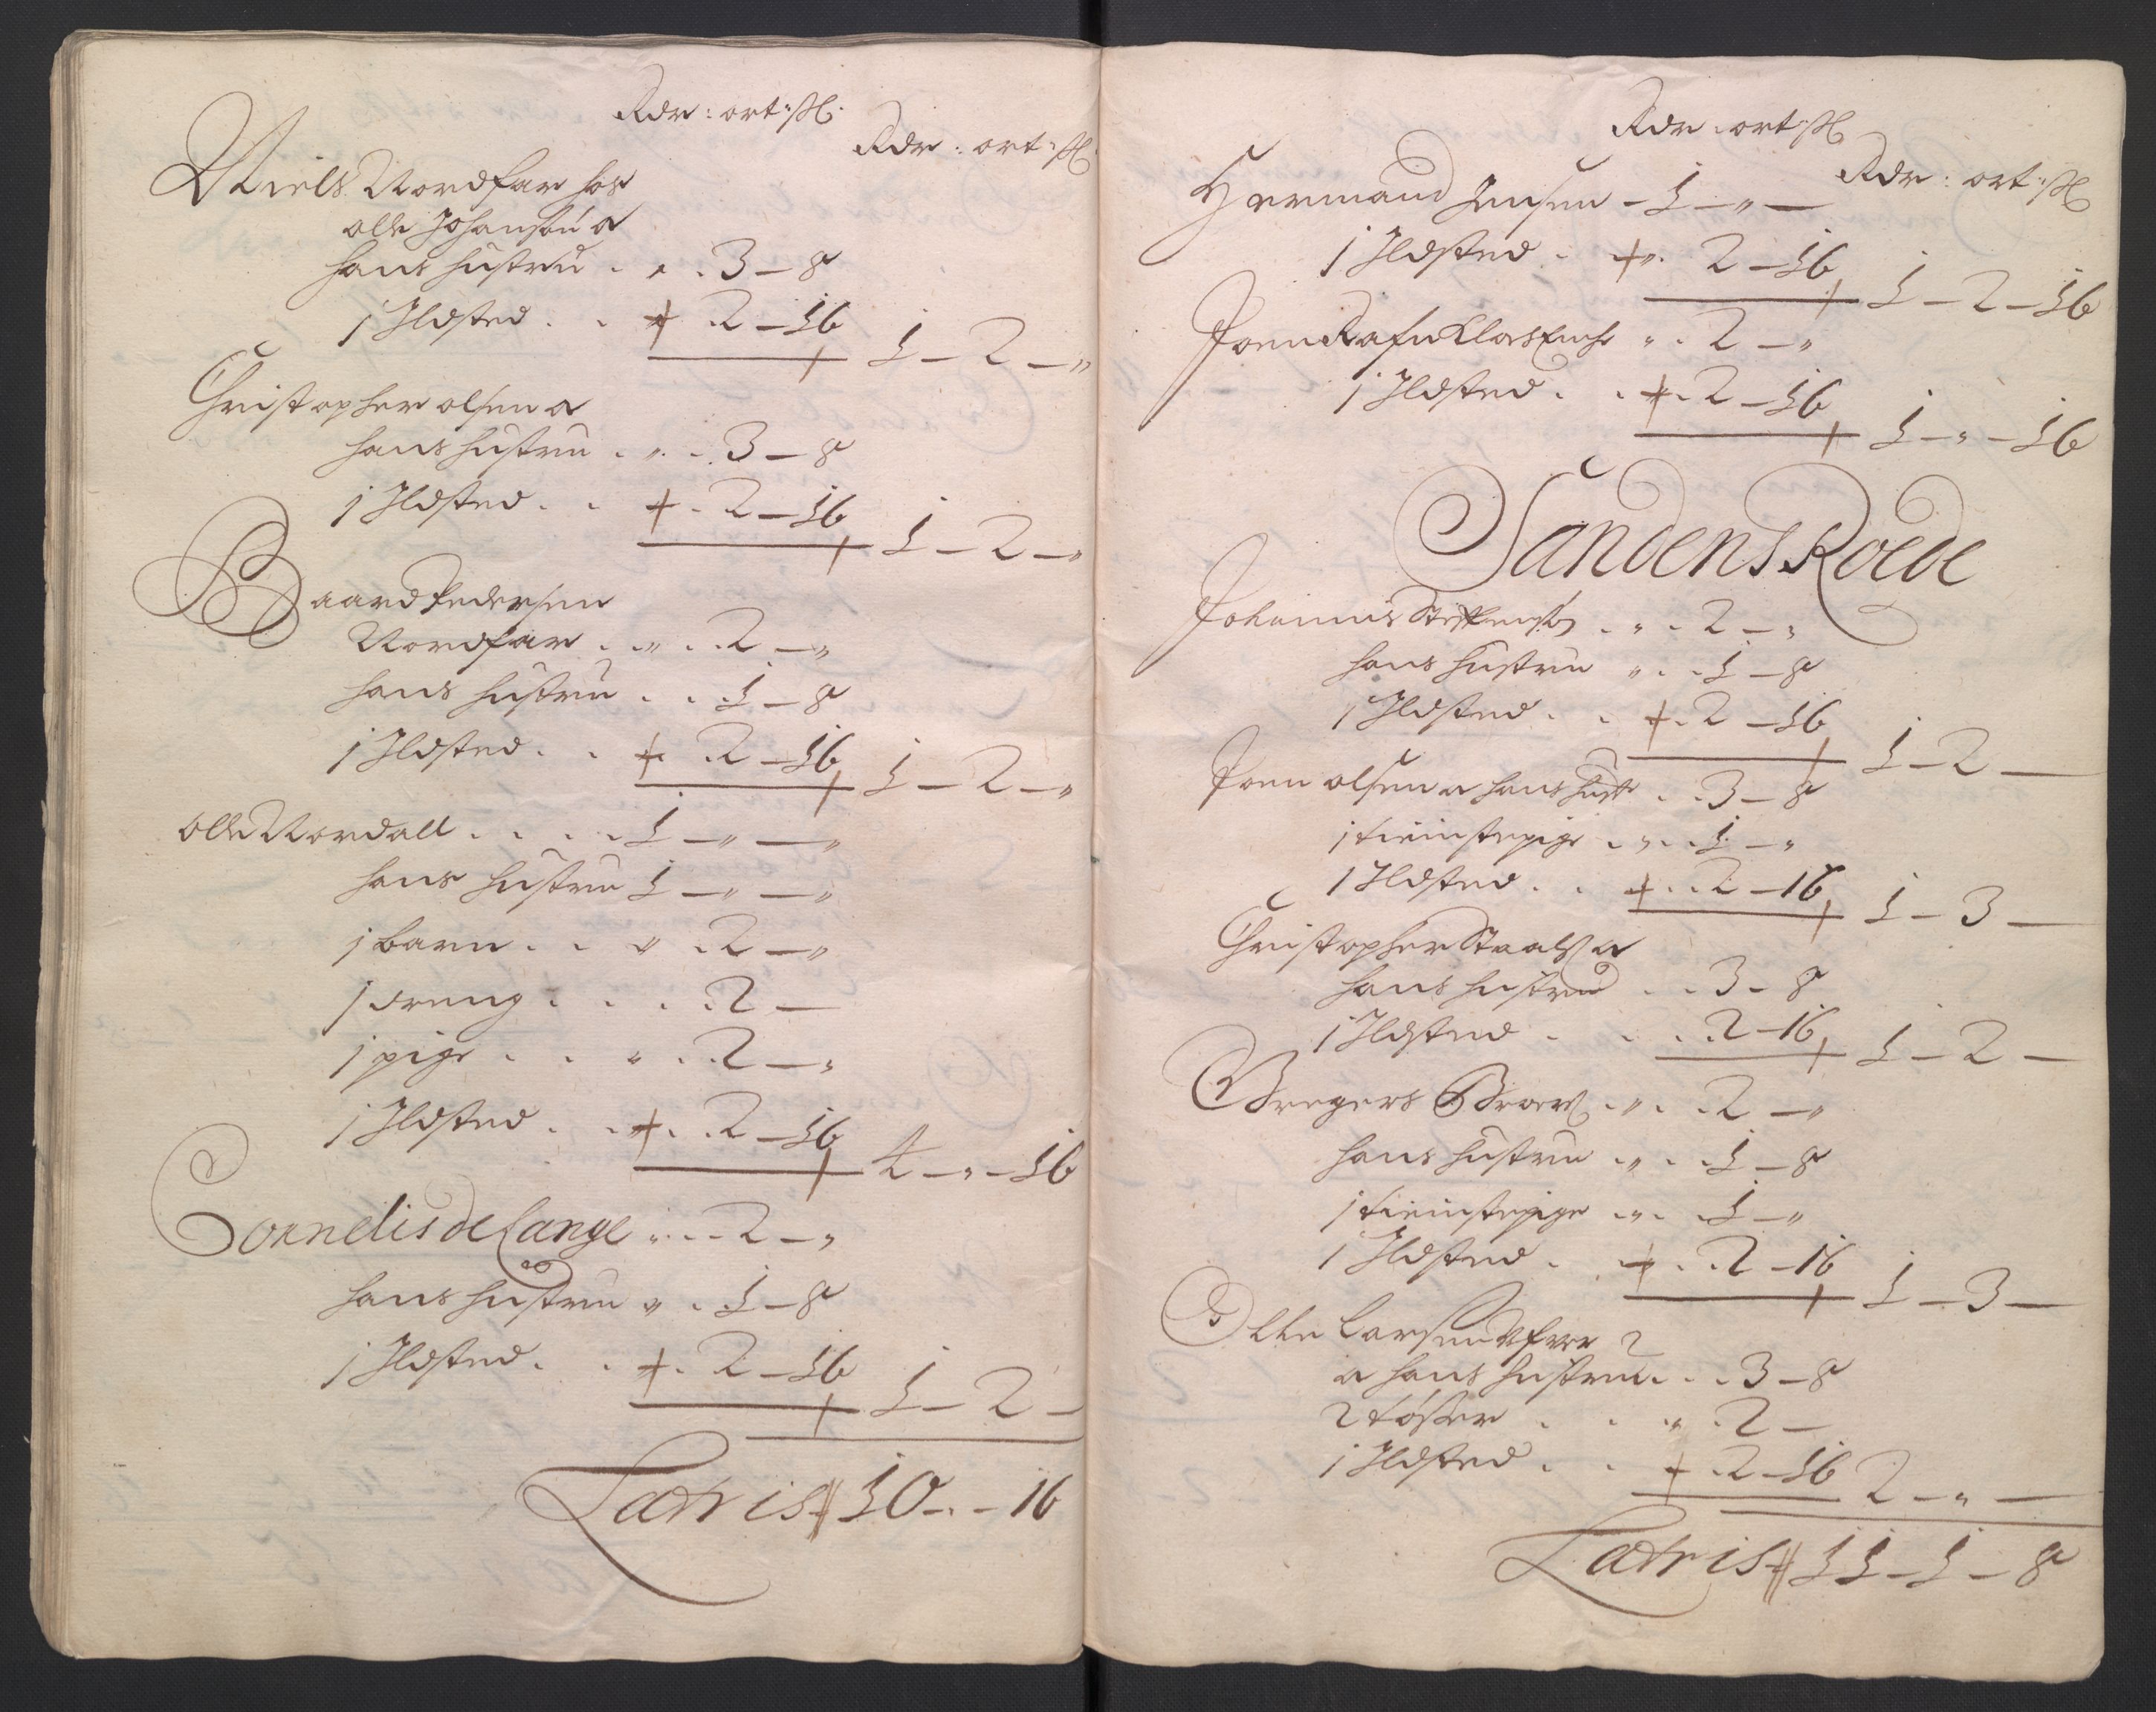 Rdr: ort: ſſ:
Rdr: ort: ſſ:
Niels Nordfar hos
olle Johansøn &
hans hustru . „ . 3 – 8
1 Ildsted . . „ 2 – 16
1 – 2 – „
Christopher olsen &
hans hustru . „ . 3 – 8
1 Ildsted . . „ 2 – 16
1 – 2 – „
Baard Pedersen
Nordfar . „ . 2 – „
hans hustru . . 1 – 8
1 Ildsted . . „ 2 – 16
1 – 2 – „
olle Nordall . . . . 1 – „ – „
hans hustru 1 – „ – „
1 barn . . „ . 2 – „
1 dreng . . . . 2 –
1 pige . . „ . 2 – „
1 Ildsted . . „ . 2 – 16
4 – „ – 16
Cornelis de Lange „ . . 2 – „
hans hustru „ . 1 – 8
1 Ildsted . . „ . 2 – 16
1 – 2 –
Latris 10 – „ – 16
Rdr : ort : ſſ
Rdr : ort : ſſ
Hermand Jensen – 1 – „ –
1 Ildsted . „ . 2 – 16
1 – 2 – 16
Joen Rafn „ . 2 – „
1 Ildsted . . „ . 2 – 16
1 – „ – 16
Sandens Roede
Johannis . „ . 2 – „
hans hustru „ . . 1 – 8
1 Ildsted . . „ . 2 – 16
1 – 2 –
Joen olsen & hans hustr . . 3 – 8
1 tienistepige . „ . . 1 – „
1 Ildsted . . „ . . 2 – 16
1 – 3 –
Christopher &
hans hustrue . . 3 – 8
1 Ildsted . . . . 2 – 16
1 – 2 –
Gregers . „ . . 2 – „
hans hustru . „ . . 1 – 8
1 tienistepige . „ . . 1 – „
1 Ildsted . „ . . 2 – 16
1 – 3 –
Olle Larsen
& hans hustru . . . 3 – 8
2 tøsser . . „ . 2 –
1 Ildsted . . „ . 2 – 16
2 – „ –
Latris 11 – 1 – 8